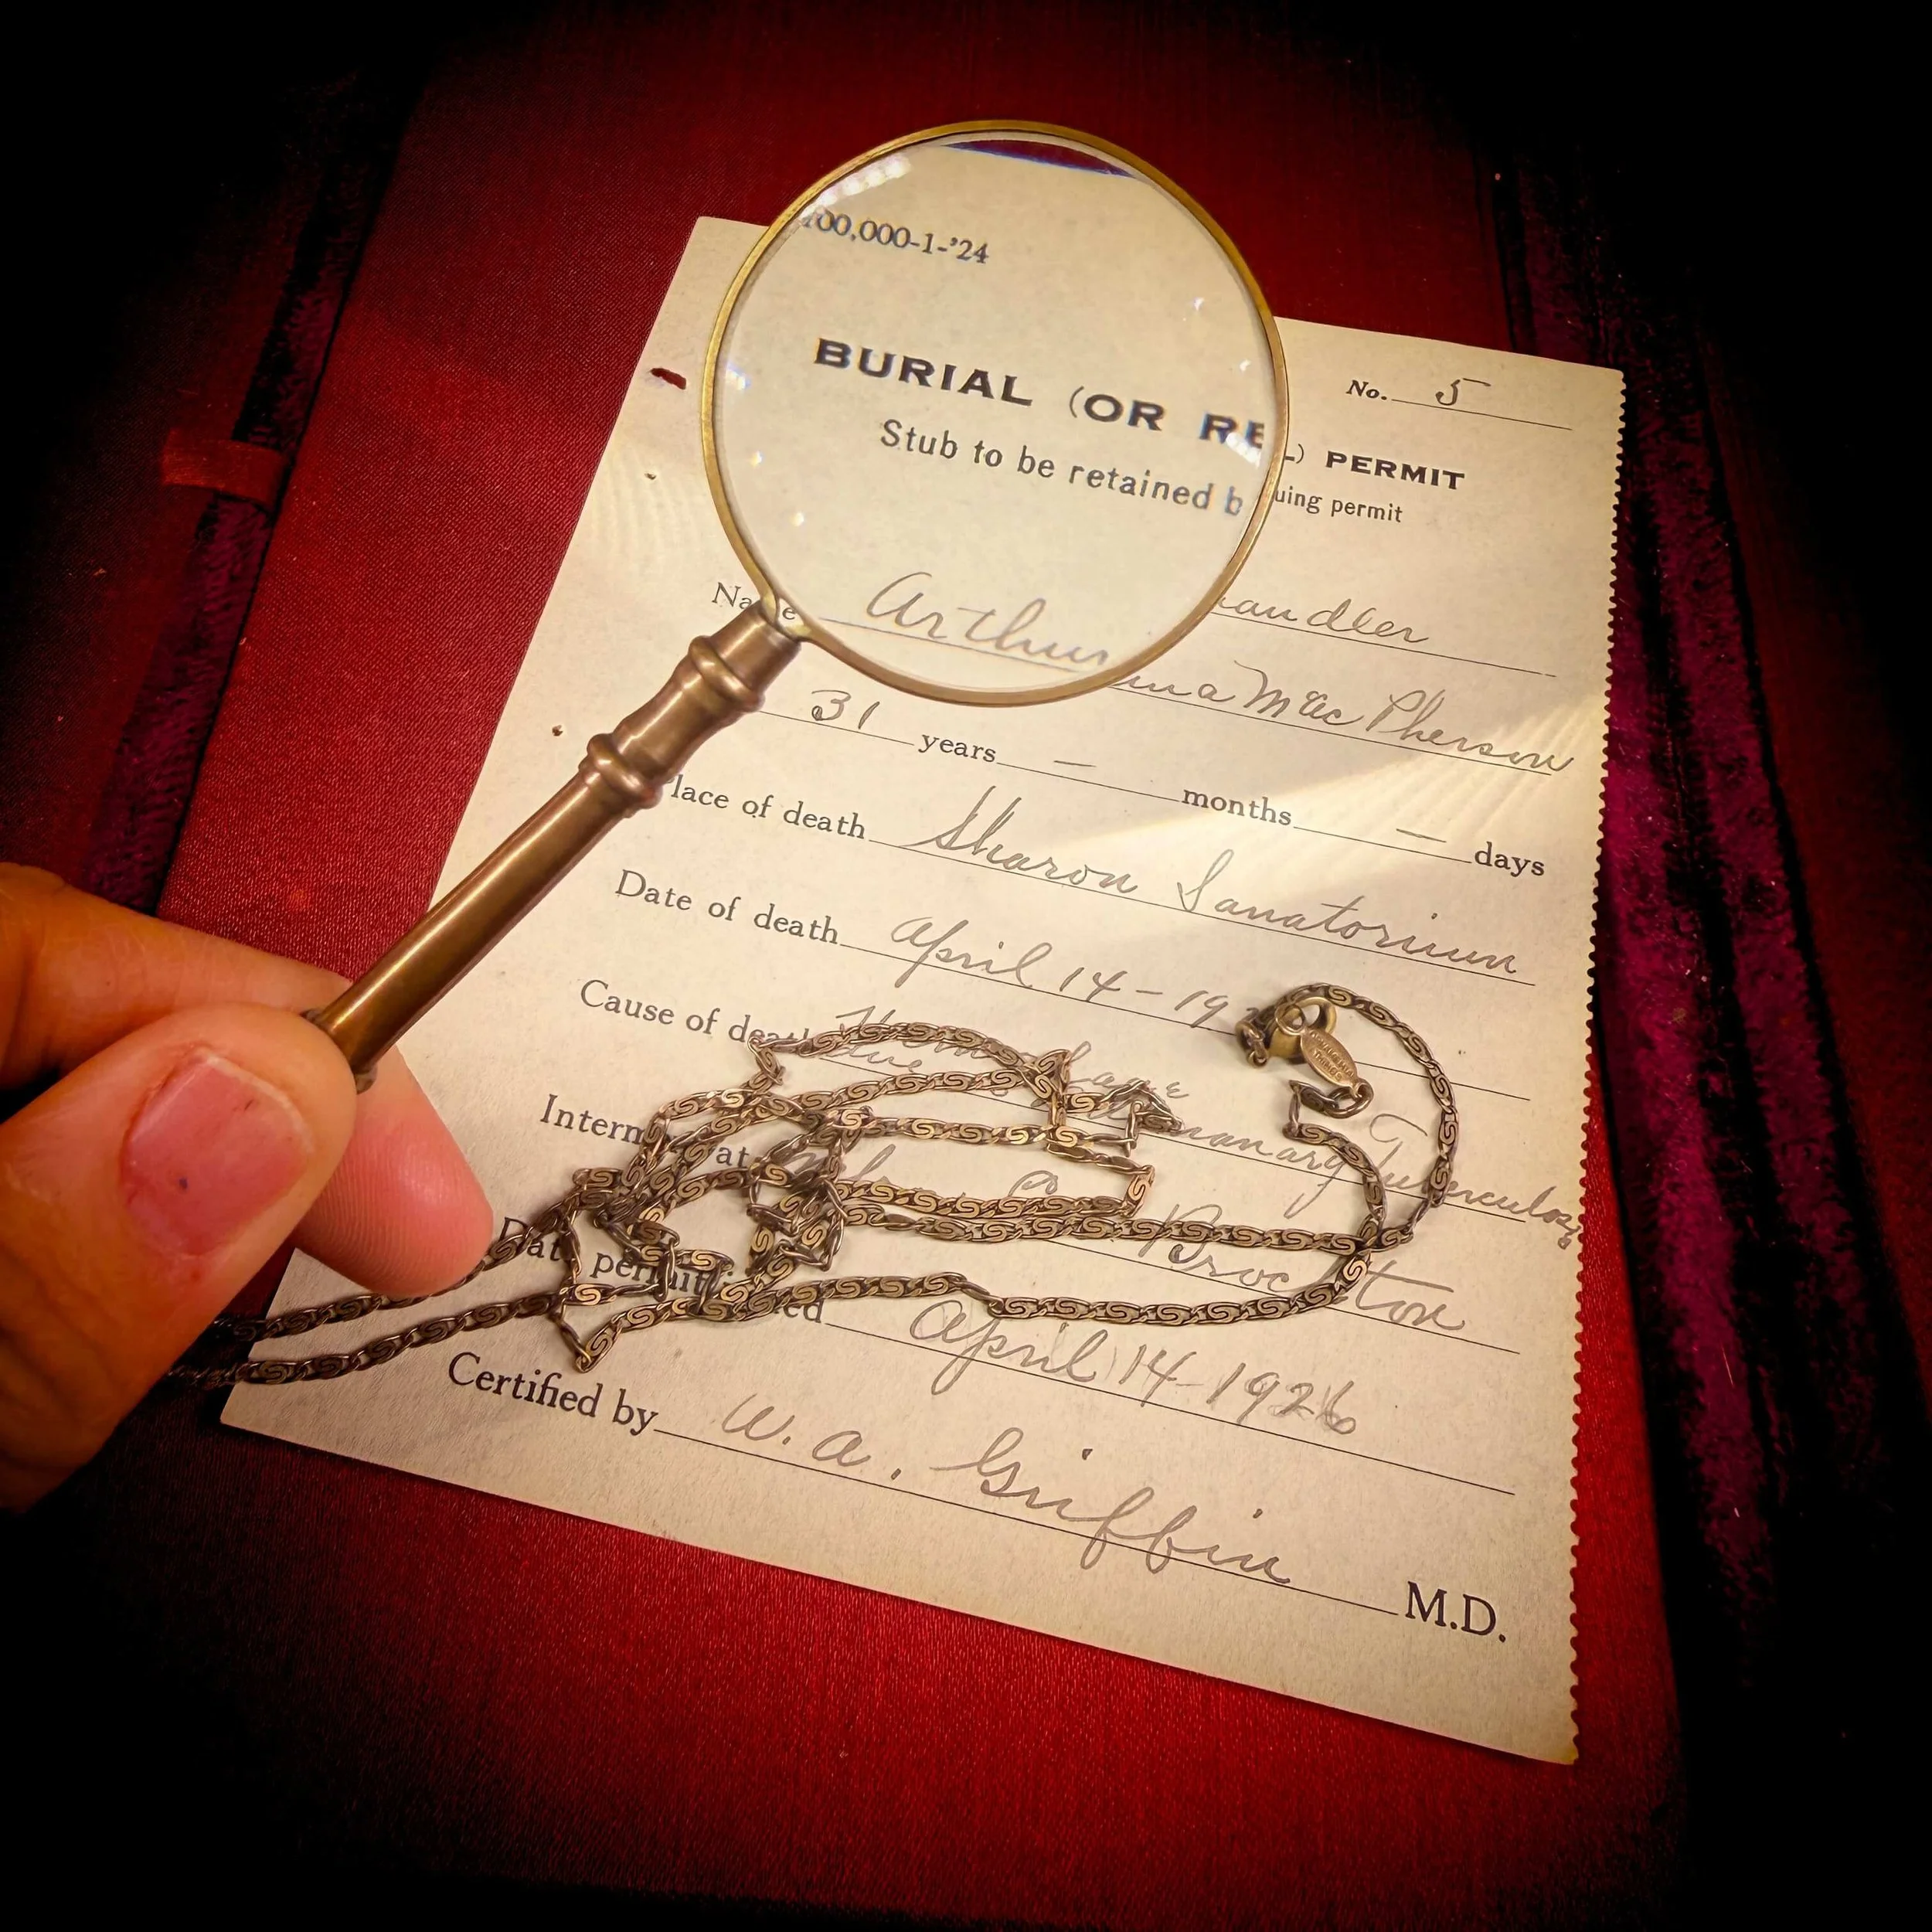 100,000-1-'24
No. 5
BURIAL (OR RE L) PERMIT
Stub to be retained b uing permit
Name Arthur andler
ma MacPherson
31 years — months — days
Place of death Sharon Sanatorium
Date of death April 14-19
Cause of death
Tuberculosis
Interm at
Brockton
Date permit ed April 14-1926
Certified by W. A. Griffin M.D.